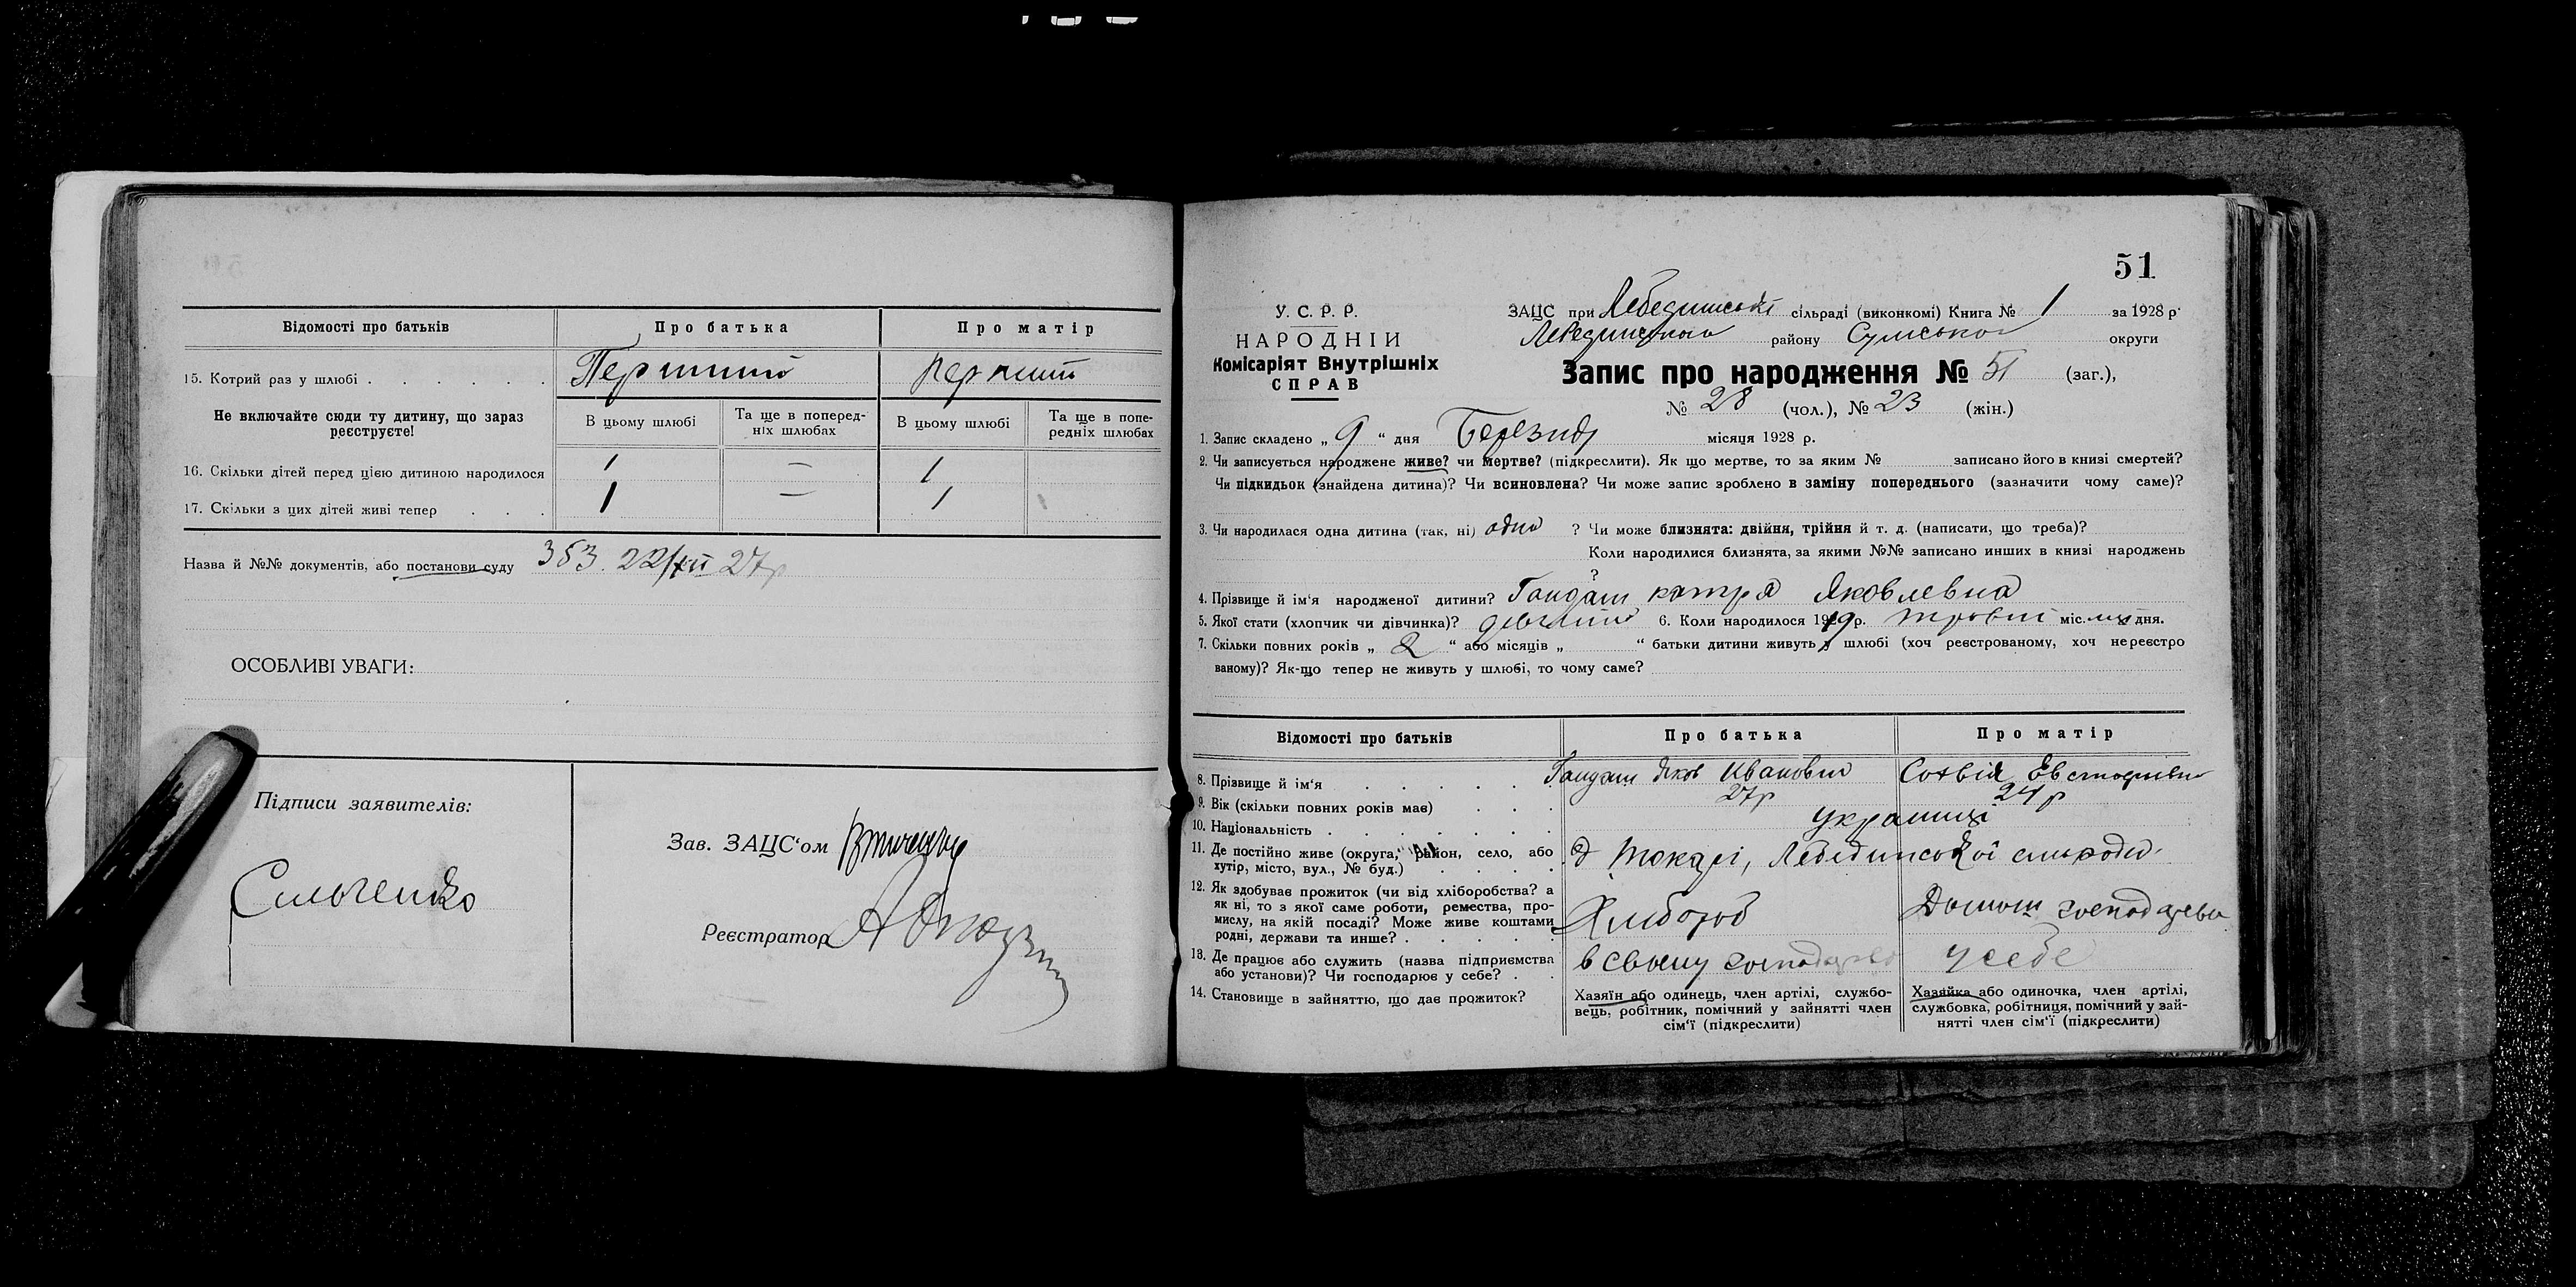 Відомості про батьків Про батька Про матір
15. Котрий раз у шлюбі . . . . . .
Не включайте сюди ту дитину, що зараз реєструєте!
В цьому шлюбі Та ще в поперед-ніх шлюбах В цьому шлюбі Та ще в попе-редніх шлюбах
16. Скільки дітей перед цією дитиною народилося 1 — 1
17. Скільки з цих дітей живі тепер . . . 1 — 1
Назва й №№ документів, або постанови суду 353. 22/XII 27р
ОСОБЛИВІ УВАГИ:
Підписи заявителів:
Сильченко
Зав. ЗАЦС‘ом
Реєстратор
51
У. С. Р. Р.
НАРОДНІЙ
Комісаріят Внутрішніх
СПРАВ
ЗАЦС при Лебединські сільраді (виконкомі) Книга № 1 за 1928 р.
району Сумсько округи
Запис про народження № 51 (заг.),
№ 28 (чол.), № 23 (жін.)
1. Запис складено „ 9 “ дня місяця 1928 р.
2. Чи записується народжене живе? чи мертве? (підкреслити). Як що мертве, то за яким № записано його в книзі смертей?
Чи підкидьок (знайдена дитина)? Чи всиновлена? Чи може запис зроблено в заміну попереднього (зазначити чому саме)?
3. Чи народилася одна дитина (так, ні) одна ? Чи може близнята: двійня, трійня й т. д. (написати, що треба)?
Коли народилися близнята, за якими №№ записано инших в книзі народжень
?
4. Прізвище й ім‘я народженої дитини? Гандаш катря Яковлевна
5. Якої стати (хлопчик чи дівчинка)? 6. Коли народилося р. міс. дня.
7. Скільки повних років „ 2 “ або місяців „ “ батьки дитини живуть у шлюбі (хоч реєстрованому, хоч нереєстро
ваному)? Як-що тепер не живуть у шлюбі, то чому саме?
Відомості про батьків Про батька Про матір
8. Прізвище й ім‘я . . . . . . Гандаш Яков Иванович Софвія
9. Вік (скільки повних років має) . . . 27р 24р
10. Національність . . . . . . . українці
11. Де постійно живе (округа, район, село, або
хутір, місто, вул., № буд.) . . . .
Токарі, Лебединської сільради
12. Як здобуває прожиток (чи від хліборобства? а
як ні, то з якої саме роботи, ремества, про-
мислу, на якій посаді? Може живе коштами
родні, держави та инше? . . . . .
Хлибороб Домаш господарство
13. Де працює або служить (назва підприємства
або установи)? Чи господарює у себе? . .
в своему господарстві у себе
14. Становище в зайняттю, що дає прожиток?
Хазяїн або одинець, член артілі, службо-
вець, робітник, помічний у зайнятті член
сім‘ї (підкреслити)
Хазяйка або одиночка, член артілі,
службовка, робітниця, помічний у зай-
нятті член сім‘ї (підкреслити)